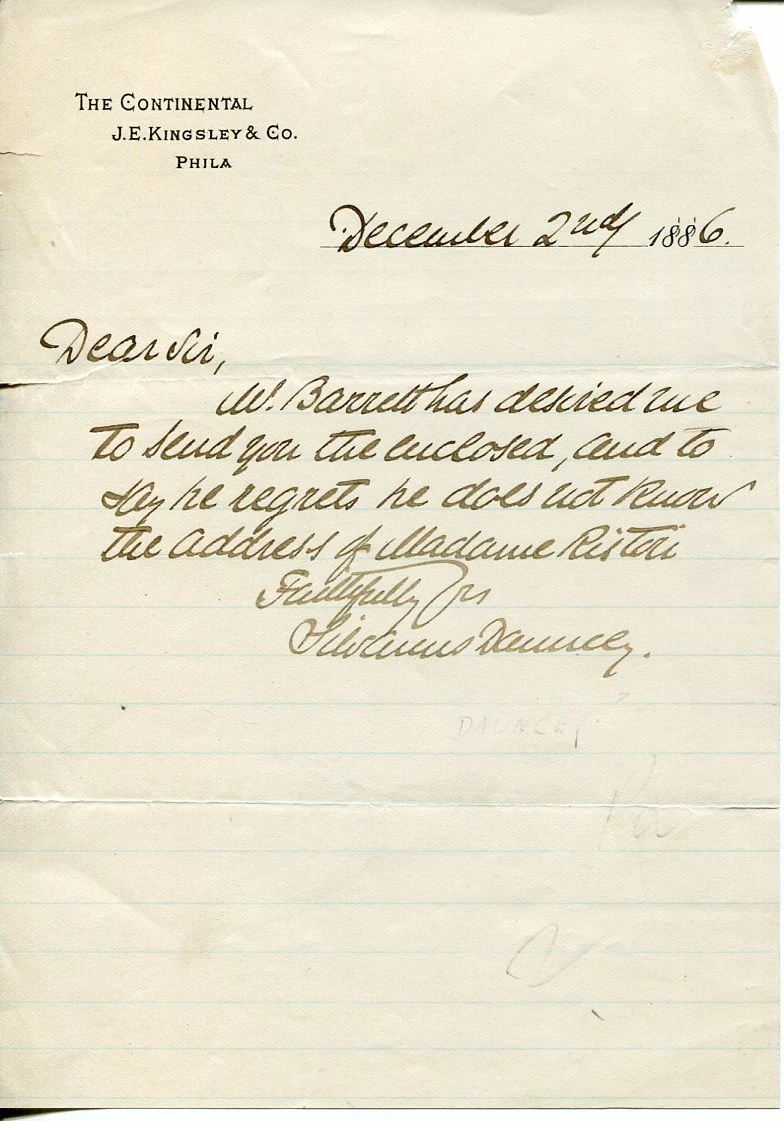 THE CONTINENTAL
J.E. KINGSLEY & CO.
PHILA
December 2nd 1886.
Dear Sir,
Mr. Barrett has desired me
to send you the enclosed, and to
say he regrets he does not know
the address of Madame Ristori
Faithfully Yrs
Silvanus Dauncey.
DAUNCEY ?